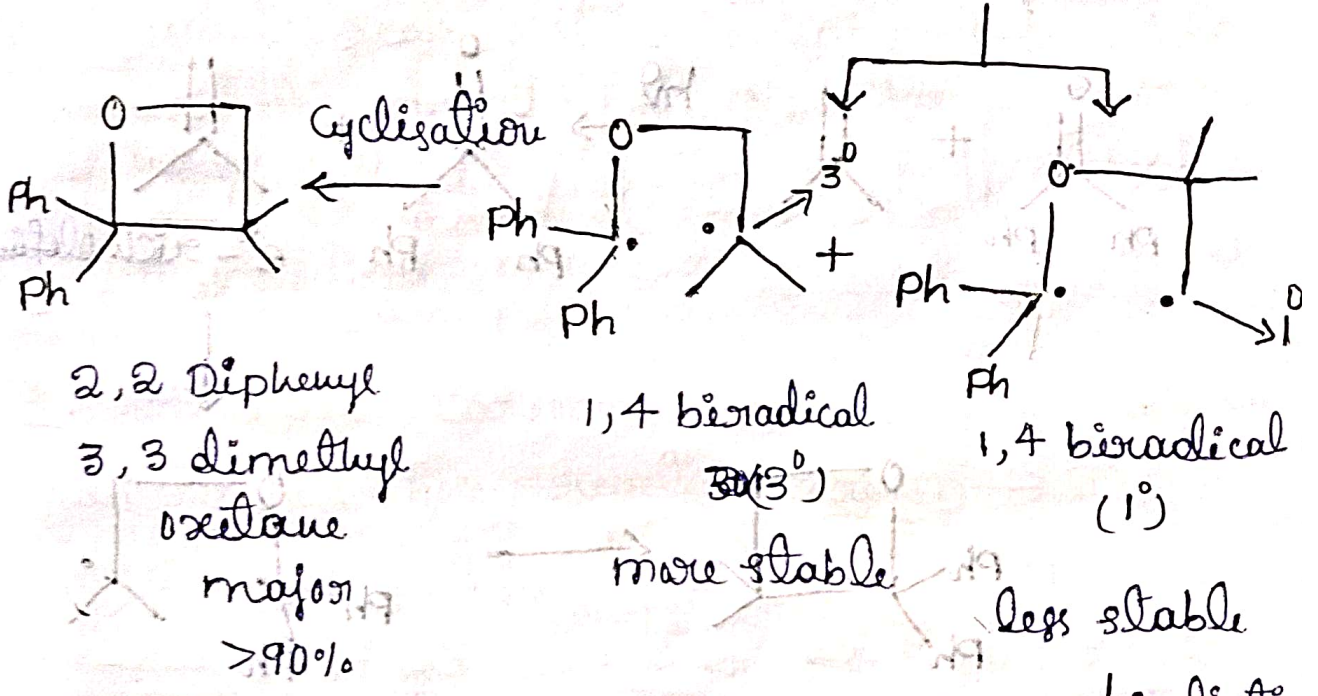 O
Cyclisation
O
3°
O
Ph
Ph
+
Ph
1°
Ph
Ph
Ph
2,2 Diphenyl
3,3 dimethyl
oxetane
major
>90%
1,4 biradical
(3°)
more stable
1,4 biradical
(1°)
less stable